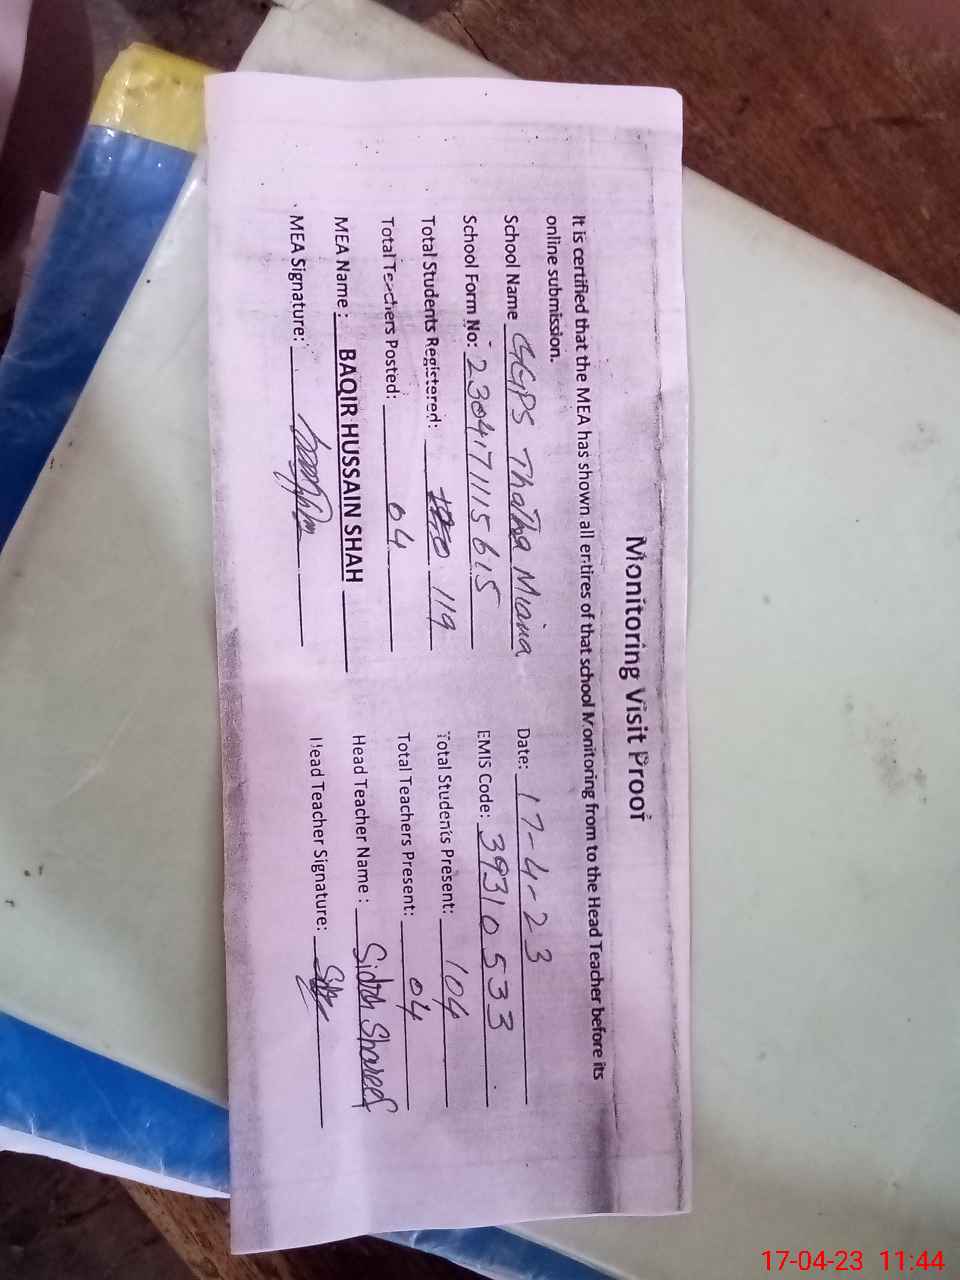 Monitoring Visit Proof
It is certified that the MEA has shown all entires of that school Monitoring from to the Head Teacher before its
online submission.
School Name GGPS Thatha Miana Date: 17-4-23
School Form No: 2304171115615 EMIS Code: 39310533
Total Students Registered: 119 Total Students Present: 104
Total Teachers Posted: 04 Total Teachers Present: 04
MEA Name : BAQIR HUSSAIN SHAH Head Teacher Name : Sidrah Shareef
MEA Signature: Head Teacher Signature:
17-04-23 11:44